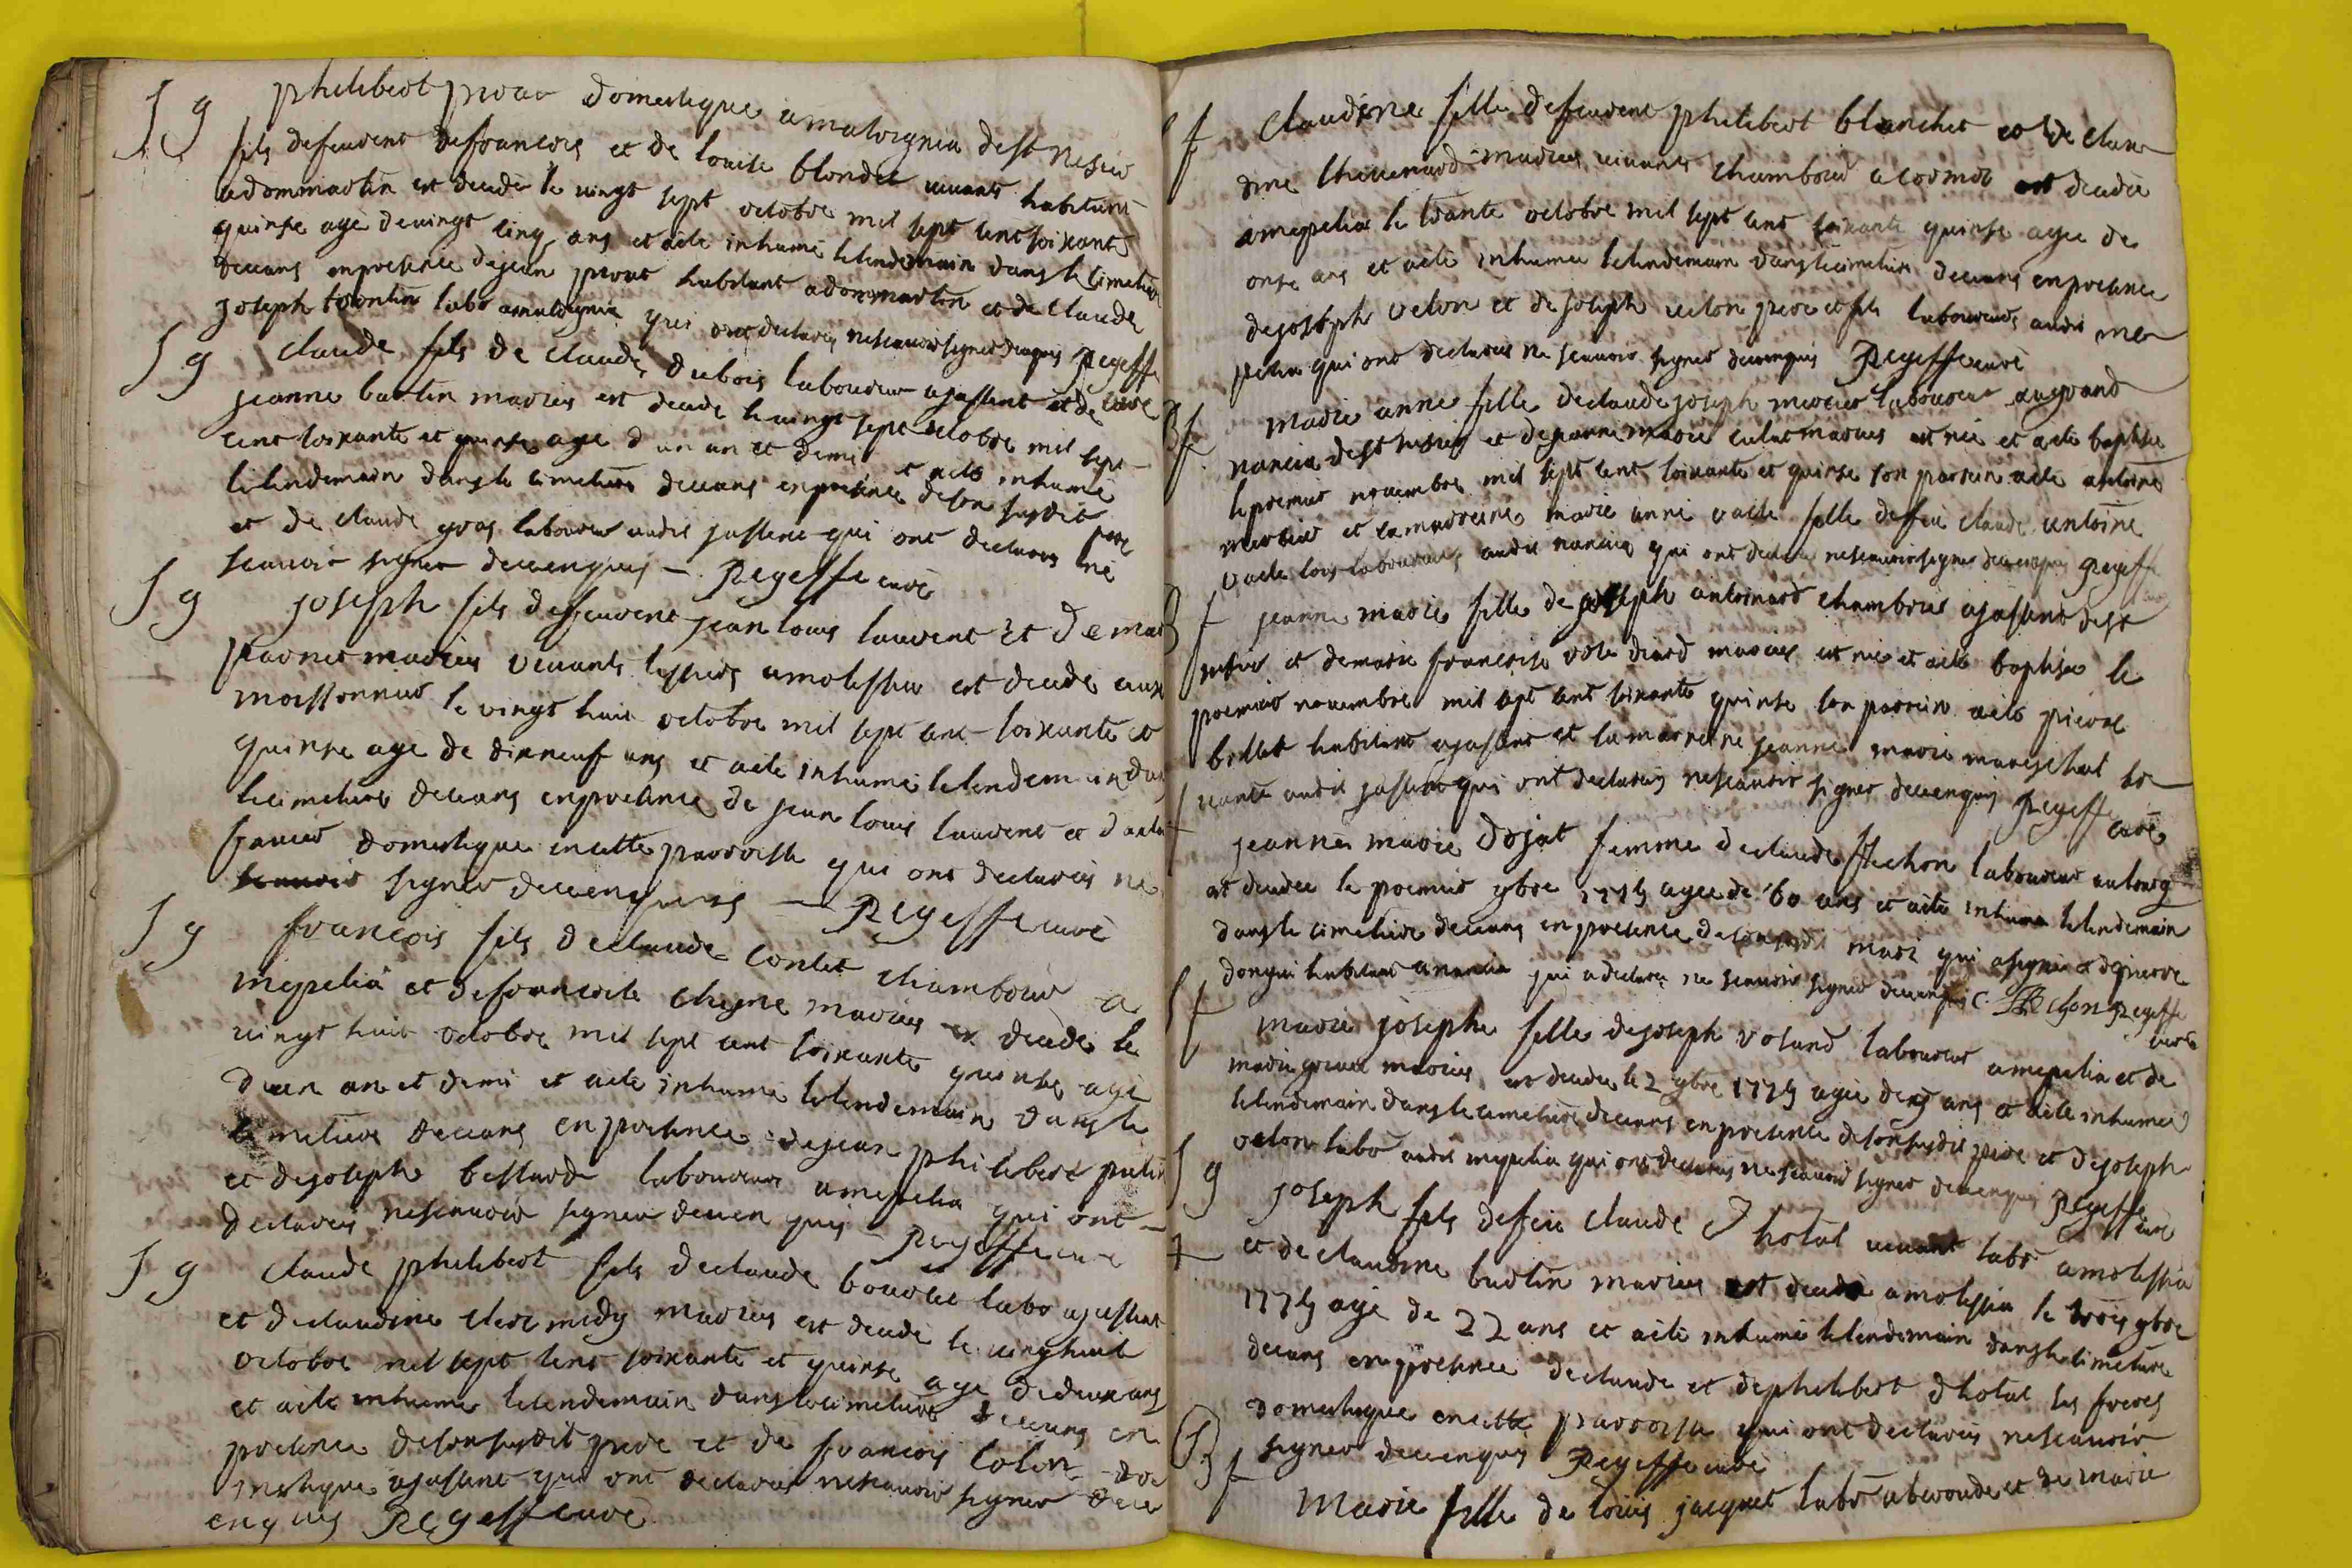 S g philibert domestique amaloignia de st nesier
fils defeuvent de francois et de louise blondet vivants habitans
adommartin est decedé le vingt sept octobre mil sept cent soixante
quinse agé de vingt cinq ans et aété inhumé le lendemain dans le cimetiere
deceans en presence de jean habitant adommartin et de claude
joseph labr amaloignia qui ont declares ne scavoir signer dece requis Régeffe
curé
S g claude fils de claude dubois laboureur ajassent et de
jeanne mariés est decedé le vingt sept octobre mil sept
cent soixante et quinse agé d un an et demi et aété inhumé
le lendemain dans le cimetiere deceans en presence de son susdit pere
et de claude gras laboureur audit jassent qui ont declares ne
scavoir signer dece enquis – Régeffe curé
S g joseph fils defeuvent jean louis laurent et de
mariés vivants amolessia est decedé aux
moissonnier le vingt huit octobre mil sept cent soixante et
quinse agé de dixneuf ans et aété inhumé le lendemain dans
le cimetiere deceans en presence de jean louis laurent et
domestique en cette parroisse qui ont declares ne
scavoir signer dece enquis – Régeffe curé
S g francois fils de claude contet chambrier a
mepelia et de francoise mariés est decedé le
vingt huit octobre mil sept cent soixante quinse agé
d un an et demi et aété inhumé le lendemain dans le
cimetiere deceans en presence de jean philibert
et de joseph bessard laboureurs amepelia qui ont –
declares ne scavoir signer dece enquis – Régeffe curé
S g claude philibert fils de claude labr ajassent
et de claudine clermidy mariés est decedé le vingt huit
octobre mil sept cent soixante et quinse agé de deux ans
et aété inhumé le lendemain dans le cimetiere deceans en
presence de son susdit pere et de francois colin do
mestique ajassent qui ont declares ne scavoir signer dece
enquis Régeffe curé
S f claudine fille defeuvent philibert blanchet et de clau
dine mariés vivants chambrier acormot est decedée
amepelia le trante octobre mil sept cent soixante quinse agée de
onse ans et aété inhumée le lendemain dans le cimetiere deceans en presence
de joseph velon et de joseph velon pere et fils laboureurs audit me
pelia qui ont declares ne scavoir signer dece enquis Régeffe curé
B f marie anne fille de claude joseph mercier laboureur augrand
nancia de st nesier et de jeanne marie mariés est née et aété baptisée
le premier novembre mil sept cent soixante et quinse son parrein aété antoine
mercier et la marreine marie anne fille de feu claude antoine
laboureurs audit nancia qui ont declares ne scavoir signer dece enquis Régeffe
B f jeanne marie fille de joseph antoinard chambrier ajassent de st
nesier et de marie francoise mariés est née et aété baptisée le
premier novembre mil sept cent soixante quinse son parrein aété pierre
billet habitant ajassent et la marreine jeanne marie mareschal ser
vante audit jassent qui ont declares ne scavoir signer dece enquis Régeffe curé
S f jeanne marie femme de claude laboureur aubourg
est decedée le premier 9bre 1775 agée de 60 ans et aété inhumée le lendemain
dans le cimetiere deceans en presence de son susdit mari qui asigné et de pierre
habitant anancia qui adeclaré ne scavoir signer dece enquis Régeffe
curé
S f marie josephe fille de joseph voland laboureur amepelia et de
marie mariés est decedée le 2 9bre 1775 agée de ans et aété inhumée
le lendemain dans le cimetiere deceans en presence de son susdit pere et de joseph
velon labr audit mepelia qui ont declares ne scavoir signer dece enquis Régeffe curé
S g joseph fils de feu claude D hotal vivant labr amolessia
et de claudine mariés est decedé amolessia le trois 9bre
1775 agé de 22 ans et aété inhumé le lendemain dans le cimetiere
deceans en presence de claude et de philibert dhotal ses freres
domestique en cette parroisse qui ont declares ne scavoir
signer dece enquis Régeffe curé
B f Marie fille de louis jacquet labr et de marie